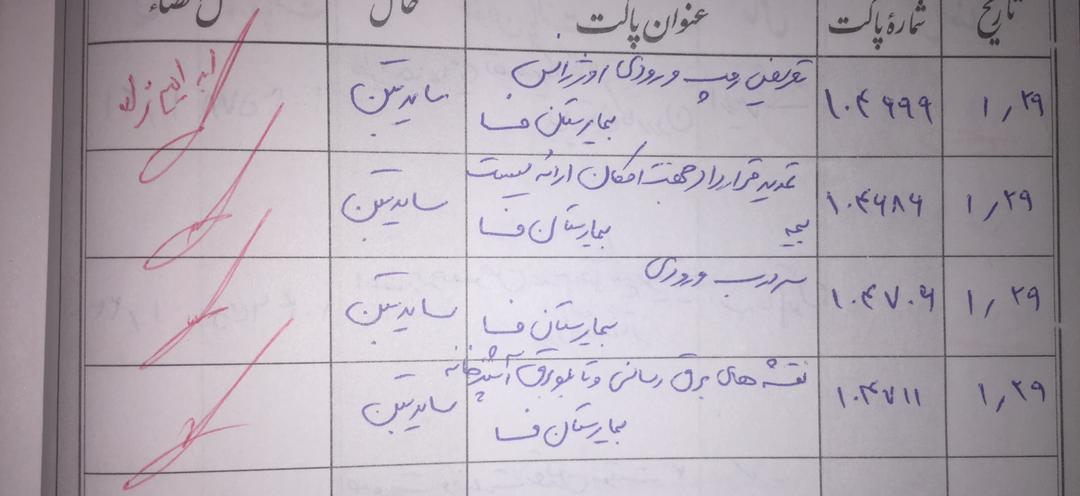 تاریخ شمارهٔ پاکت عنوان پاکت
۱٫۲۹ ۱۰۴۶۹۹ تعریض رمپ ورودی اورژانس سایت بتن
بیمارستان فسا
۱٫۲۹ ۱۰۴۶۸۶ تمدید قرارداد جهت امکان ارائه لیست سایت بتن
بیمه بیمارستان فسا
۱٫۲۹ ۱۰۴۷۰۶ سردرب ورودی سایت بتن
بیمارستان فسا
۱٫۲۹ ۱۰۴۷۱۱ نقشه های برق رسانی و تابلو برق آشپزخانه سایت بتن
بیمارستان فسا